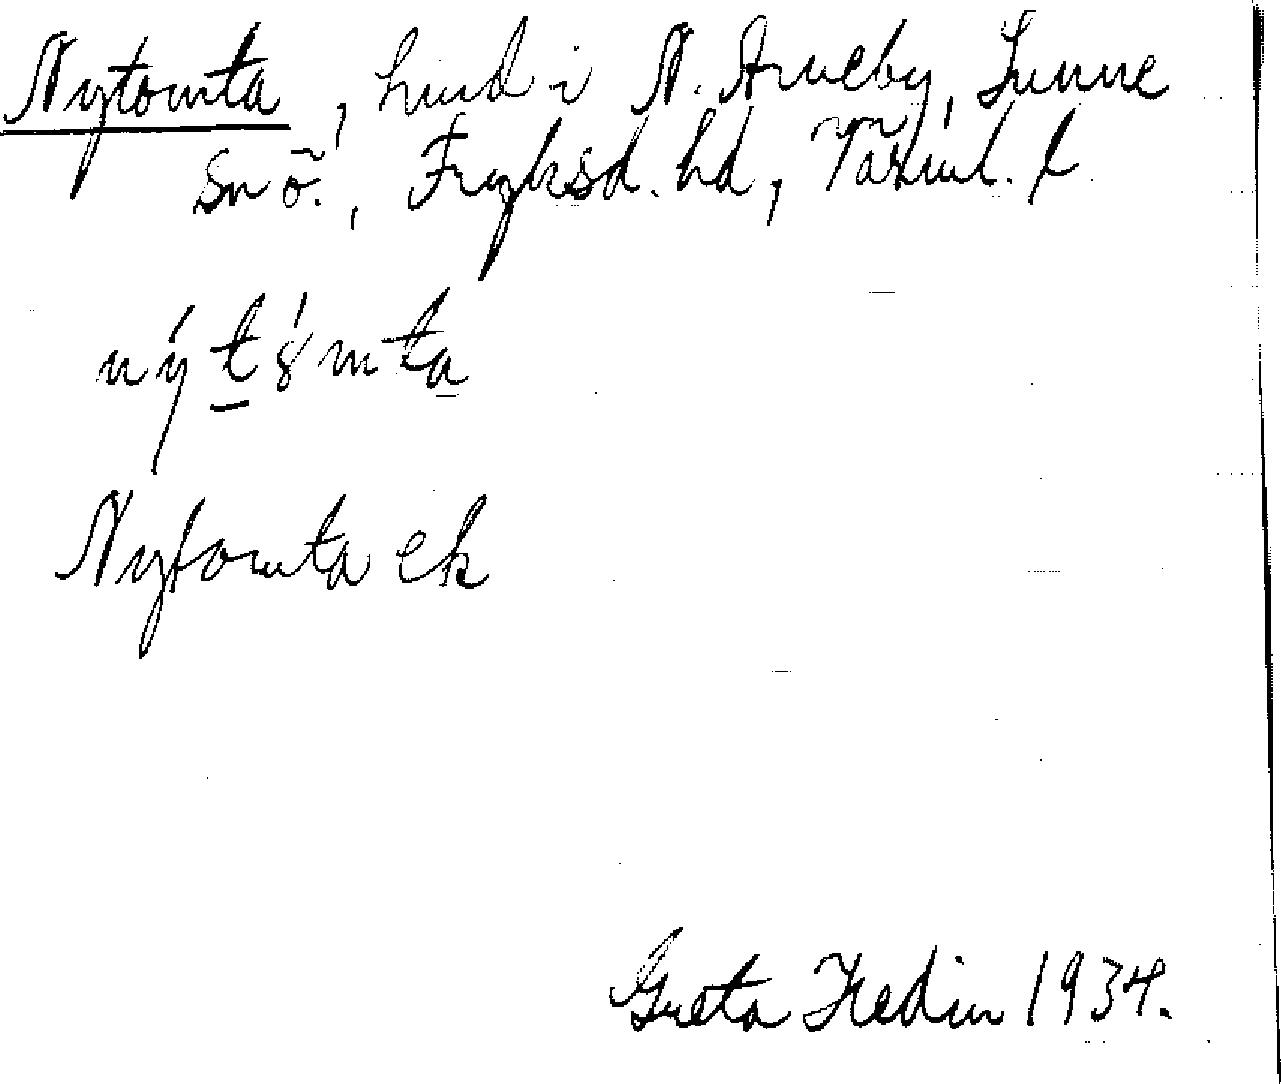 Nytomta, hmd i N. Årneby, Sunne
sn ö., Fryksd. hd, Värml. l.
nýtṓmta
Nytomta ek
Greta Hedin 1934.